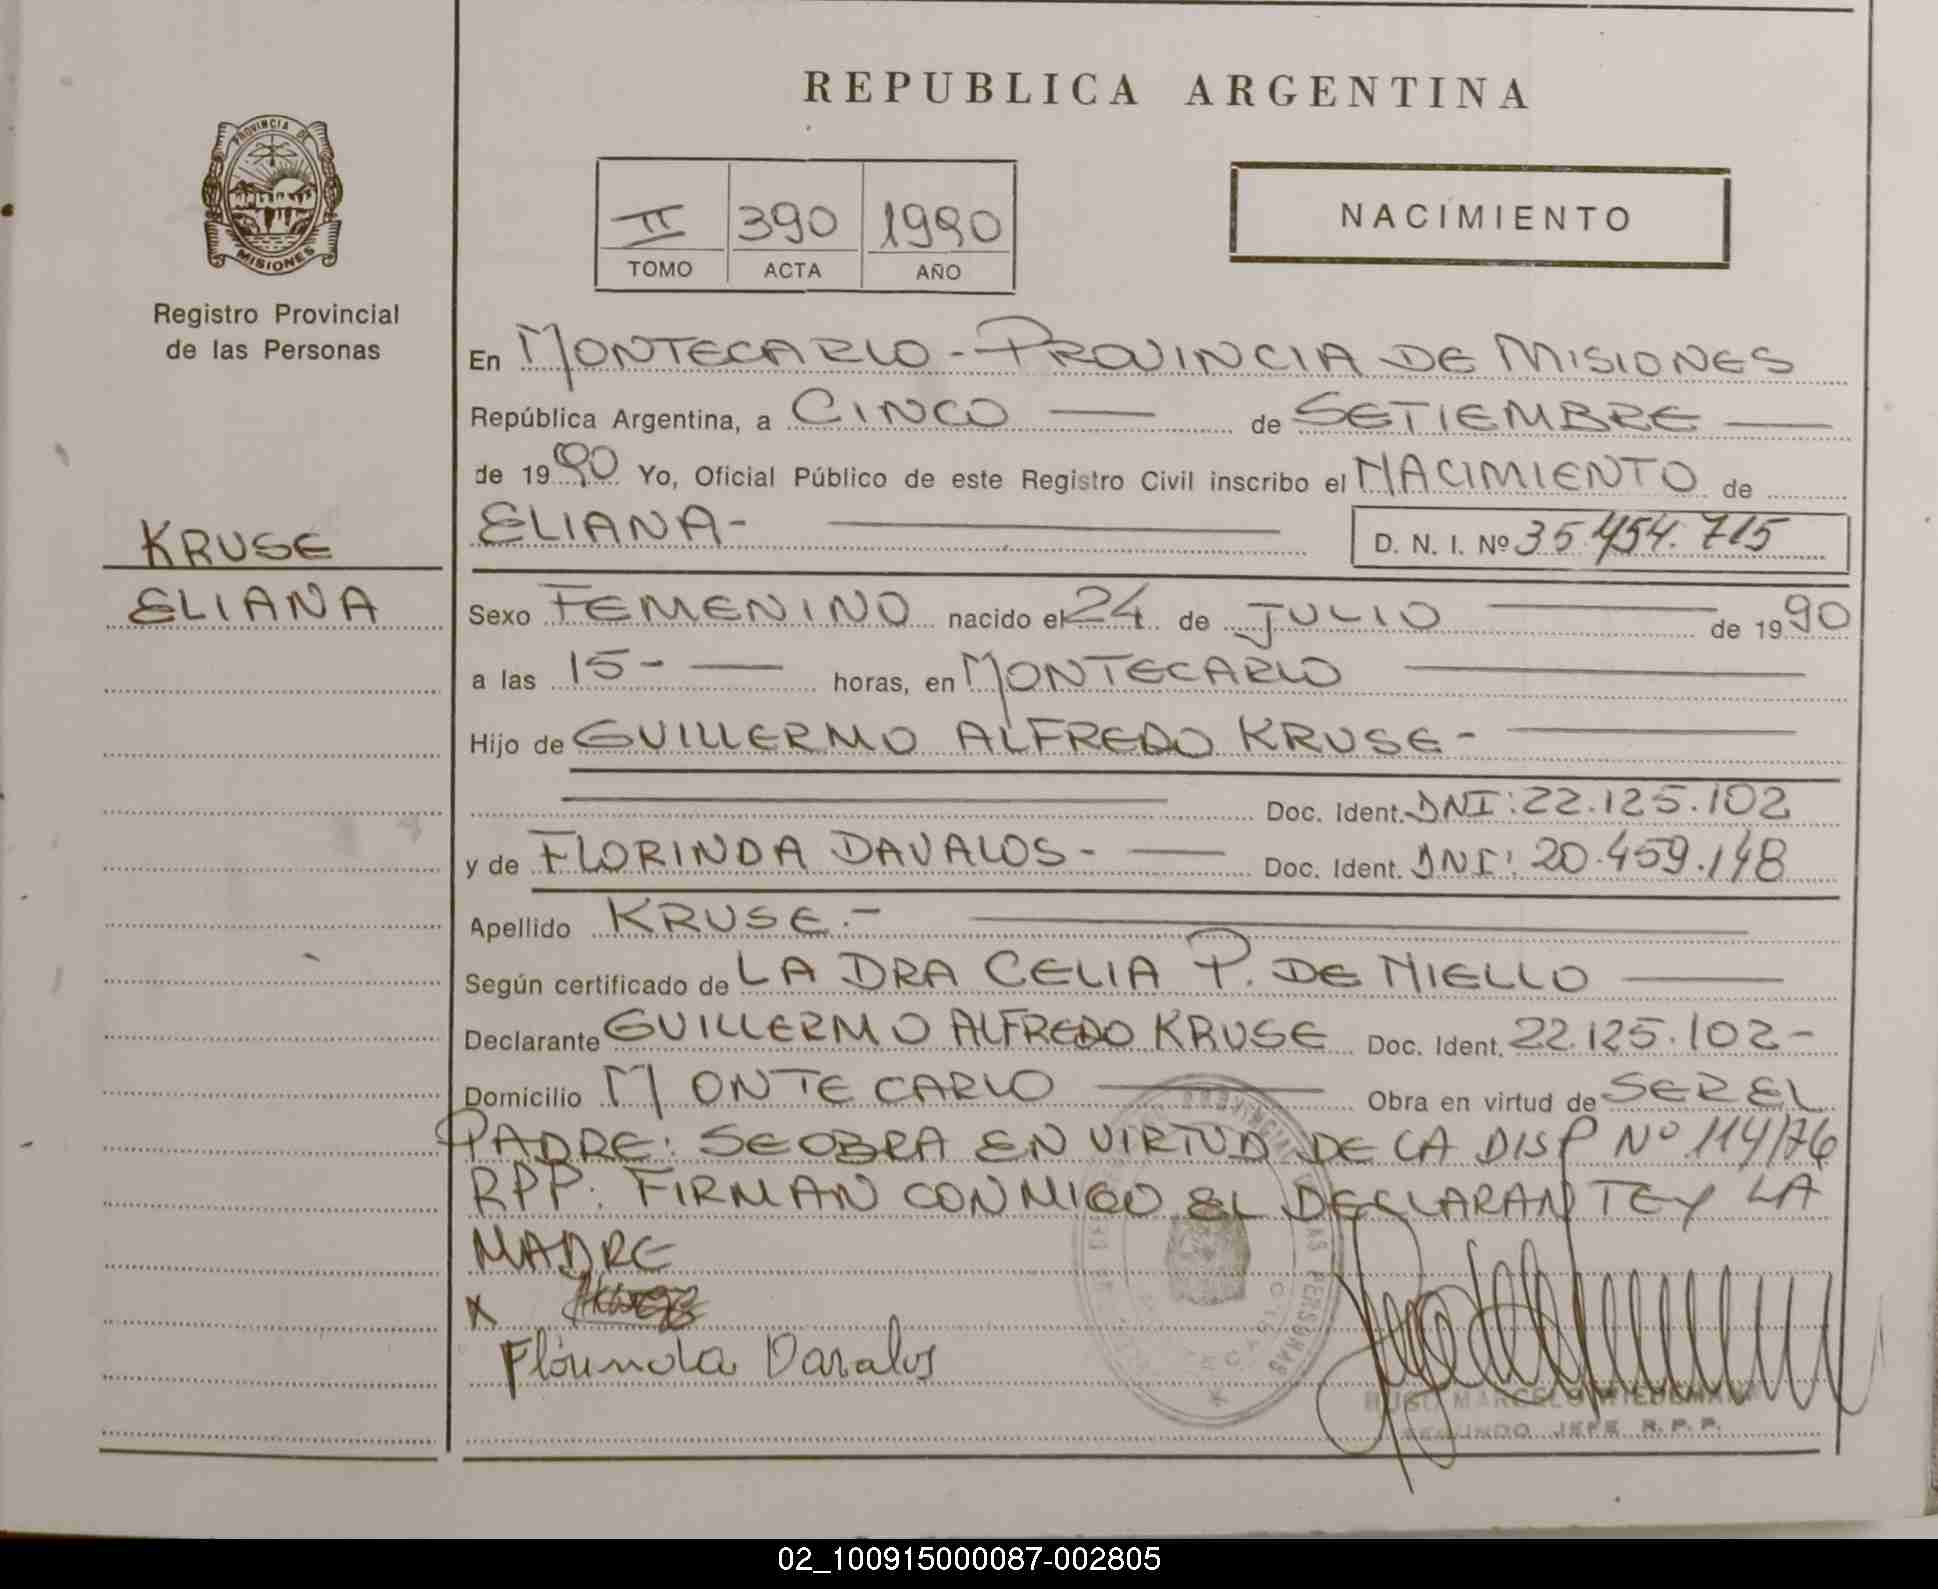 REPUBLICA ARGENTINA
PROVINCIA DE
MISIONES
Registro Provincial
de las Personas
II 390 1990
TOMO ACTA AÑO
NACIMIENTO
En MONTECARLO - PROVINCIA DE MISIONES
República Argentina, a CINCO de SETIEMBRE
de 1990 Yo, Oficial Público de este Registro Civil inscribo el NACIMIENTO de
ELIANA- D. N. I. Nº 35.454.715
KRUSE
ELIANA
Sexo FEMENINO nacido el 24 de JULIO de 1990
a las 15- horas, en MONTECARLO
Hijo de GUILLERMO ALFREDO KRUSE-
Doc. Ident. DNI: 22.125.102
y de FLORINDA DAVALOS- Doc. Ident. DNI: 20.459.148
Apellido KRUSE.-
Según certificado de LA DRA CELIA P. DE NIELLO
Declarante GUILLERMO ALFREDO KRUSE Doc. Ident. 22.125.102-
Domicilio MONTECARLO Obra en virtud de SER EL
PADRE: SE OBRA EN VIRTUD DE LA DISP Nº 114/76
RPP: FIRMAN CONMIGO EL DECLARANTE Y LA
MADRE
X
Florinda Davalos
SEGUNDO JEFE R.P.P.
02_100915000087-002805